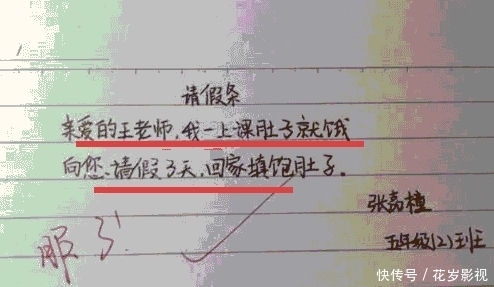 请假条
亲爱的王老师,我一上课肚子就饿
向您,请假3天,回家填饱肚子。
张嘉橦
五年级(2)班
服了!
快传号/花岁影视